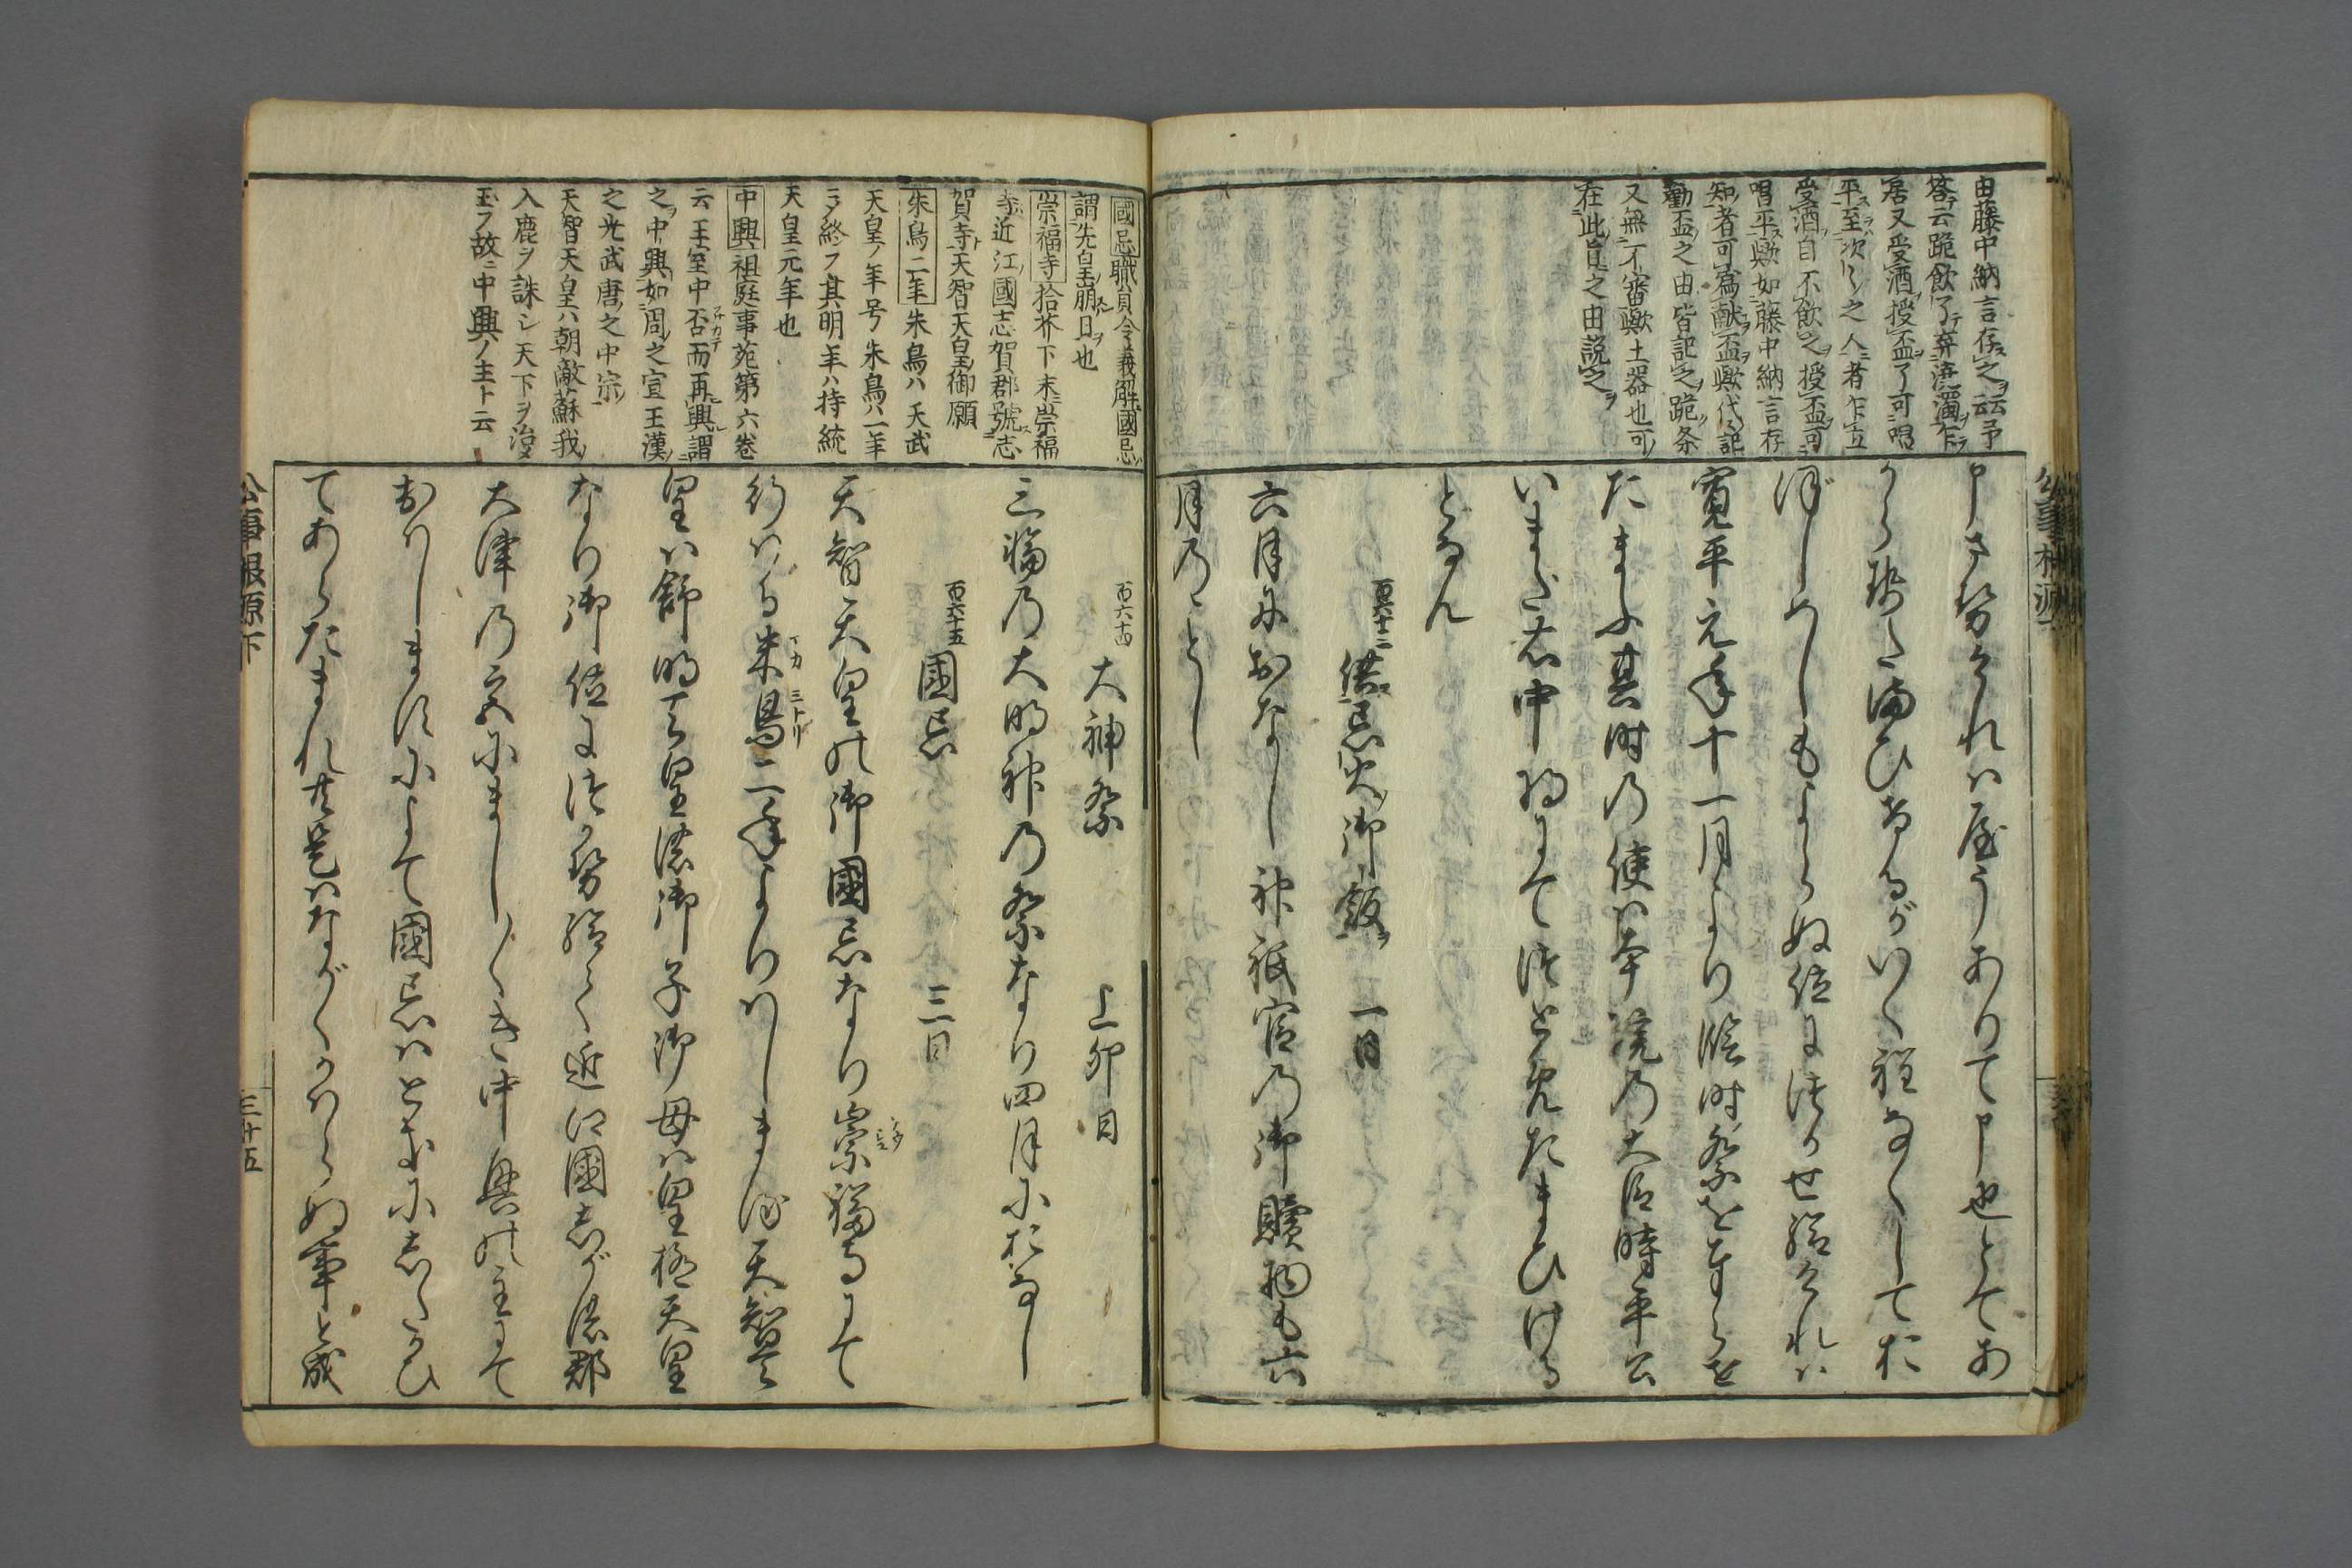 由藤中納言存之云云予
答云跪飲了弃澆濁乍
居又受酒授盃了可唱
平至次々之人者乍立
受酒自不飲之授盃可
唱平歟如藤中納言存
知者可為献盃歟代々記
勸盃之由皆記之跪条
又無不審歟土器也可
在此旨之由説之
申させ給けれは屋うありて申也とてあ
からせ給ひけるがいく程なくしてお
ぼしめしもよらぬ位につかせ給けれは
寛平元年十一月より臨時祭をはしめを
たまふ其時の使は本院の大臣時平公
いまた右中将にてつとめたまひける
となん
百六十三 供忌火御飯 一日
六月におなし神祇官の御贖物も六
月のことし
國忌職員令義解國忌
謂先皇崩日也
崇福寺拾芥下末崇福
寺近江國志賀郡號志
賀寺天智天皇御願
朱鳥二年朱鳥ハ天武
天皇ノ年号朱鳥ハ一年
ニテ終フ其明年ハ持統
天皇元年也
中興祖庭事苑第六卷
云王室中否而再興謂
之中興如周之宣王漢
之光武唐之中宗
天智天皇ハ朝敵蘇我
入鹿ヲ誅シ天下ヲ治メ
玉フ故ニ中興ノ主ト云
百六十四 大神祭 上卯日
三輪の大明神の祭なり四月におなし
百六十五 國忌 三日
天智天皇の御國忌なり崇福寺にて
行はる朱鳥二年よりはしまる天智天
皇は舒明天皇㐧御子御母は皇極天皇
なり御位につかせ給て近江國志賀の郡
大津の宮にましましき中興の主にて
おはしますによて國忌はときにしたかひ
てあらたまれ共是はながくかはらぬ事と成
公事根源下
三十五